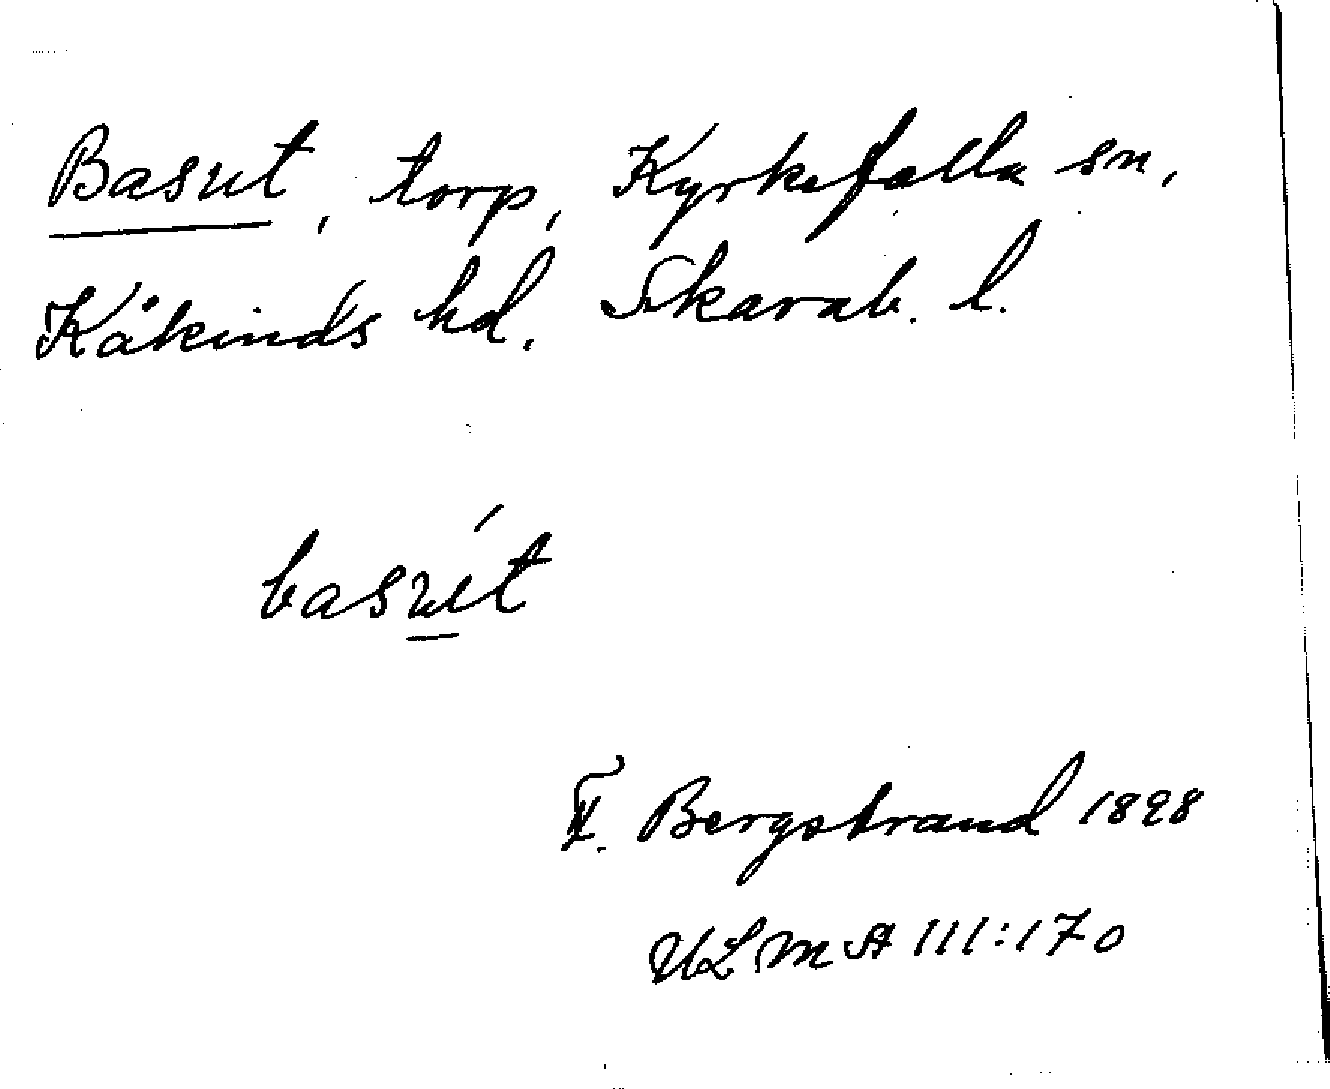 Basut, torp, Kyrkefalla sn,
Kåkinds hd. Skarab. l.
basút
F. Bergstrand 1898
ULMA 111:170